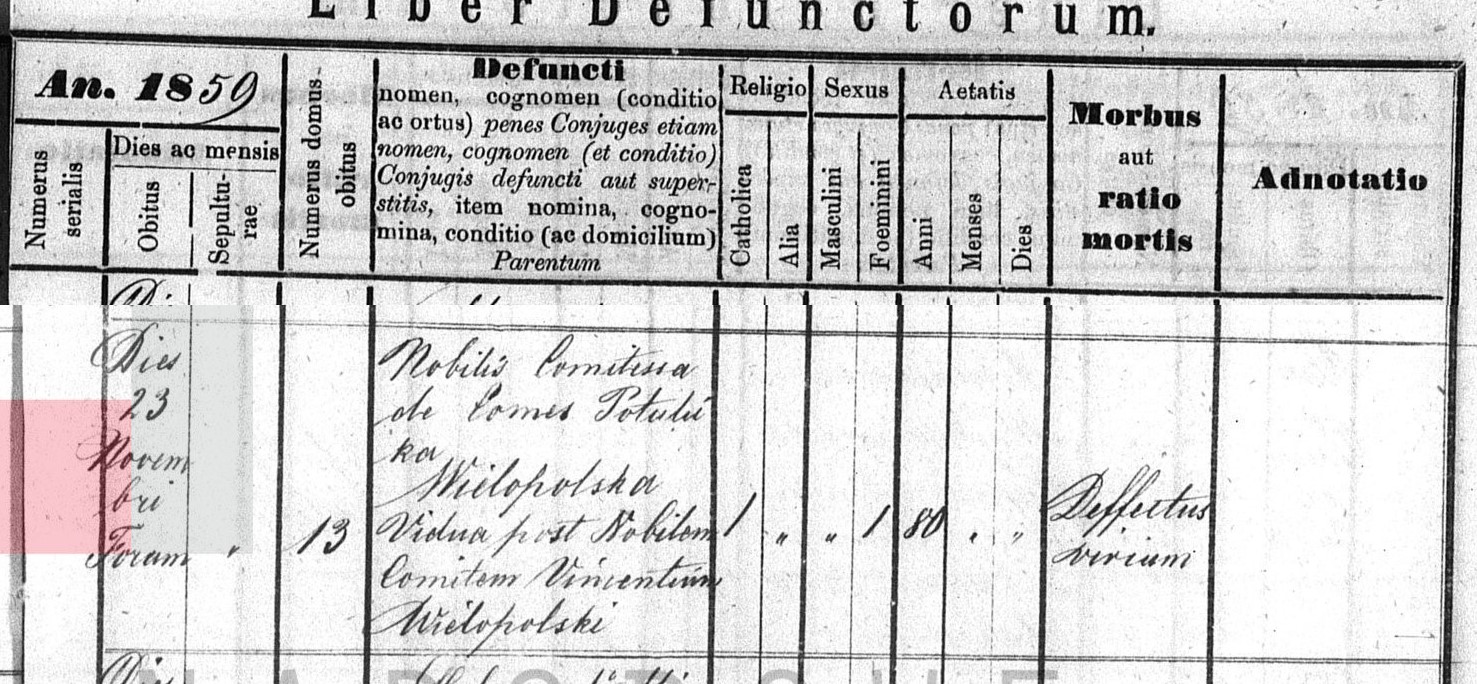 Liber Defunctorum.
An. 1859
Numerus serialis
Dies ac mensis
Obitus
Sepultu-
rae
Numerus domus
obitus
Defuncti
nomen, cognomen (conditio
ac ortus) penes Conjuges etiam
nomen, cognomen (et conditio)
Conjugis defuncti aut super-
stitis, item nomina, cogno-
mina, conditio (ac domicilium)
Parentum
Religio
Catholica
Alia
Sexus
Masculini
Foeminini
Aetatis
Anni
Menses
Dies
Morbus
aut
ratio
mortis
Adnotatio
Dies
23
Novem
bri
"
13
Nobilis Comitissa
de Comes Potulic
ka
Wielopolska
Vidua post Nobilem
Comitem Vincentium
Wielopolski
1 " " 1 80 " "
Deffectus
virium